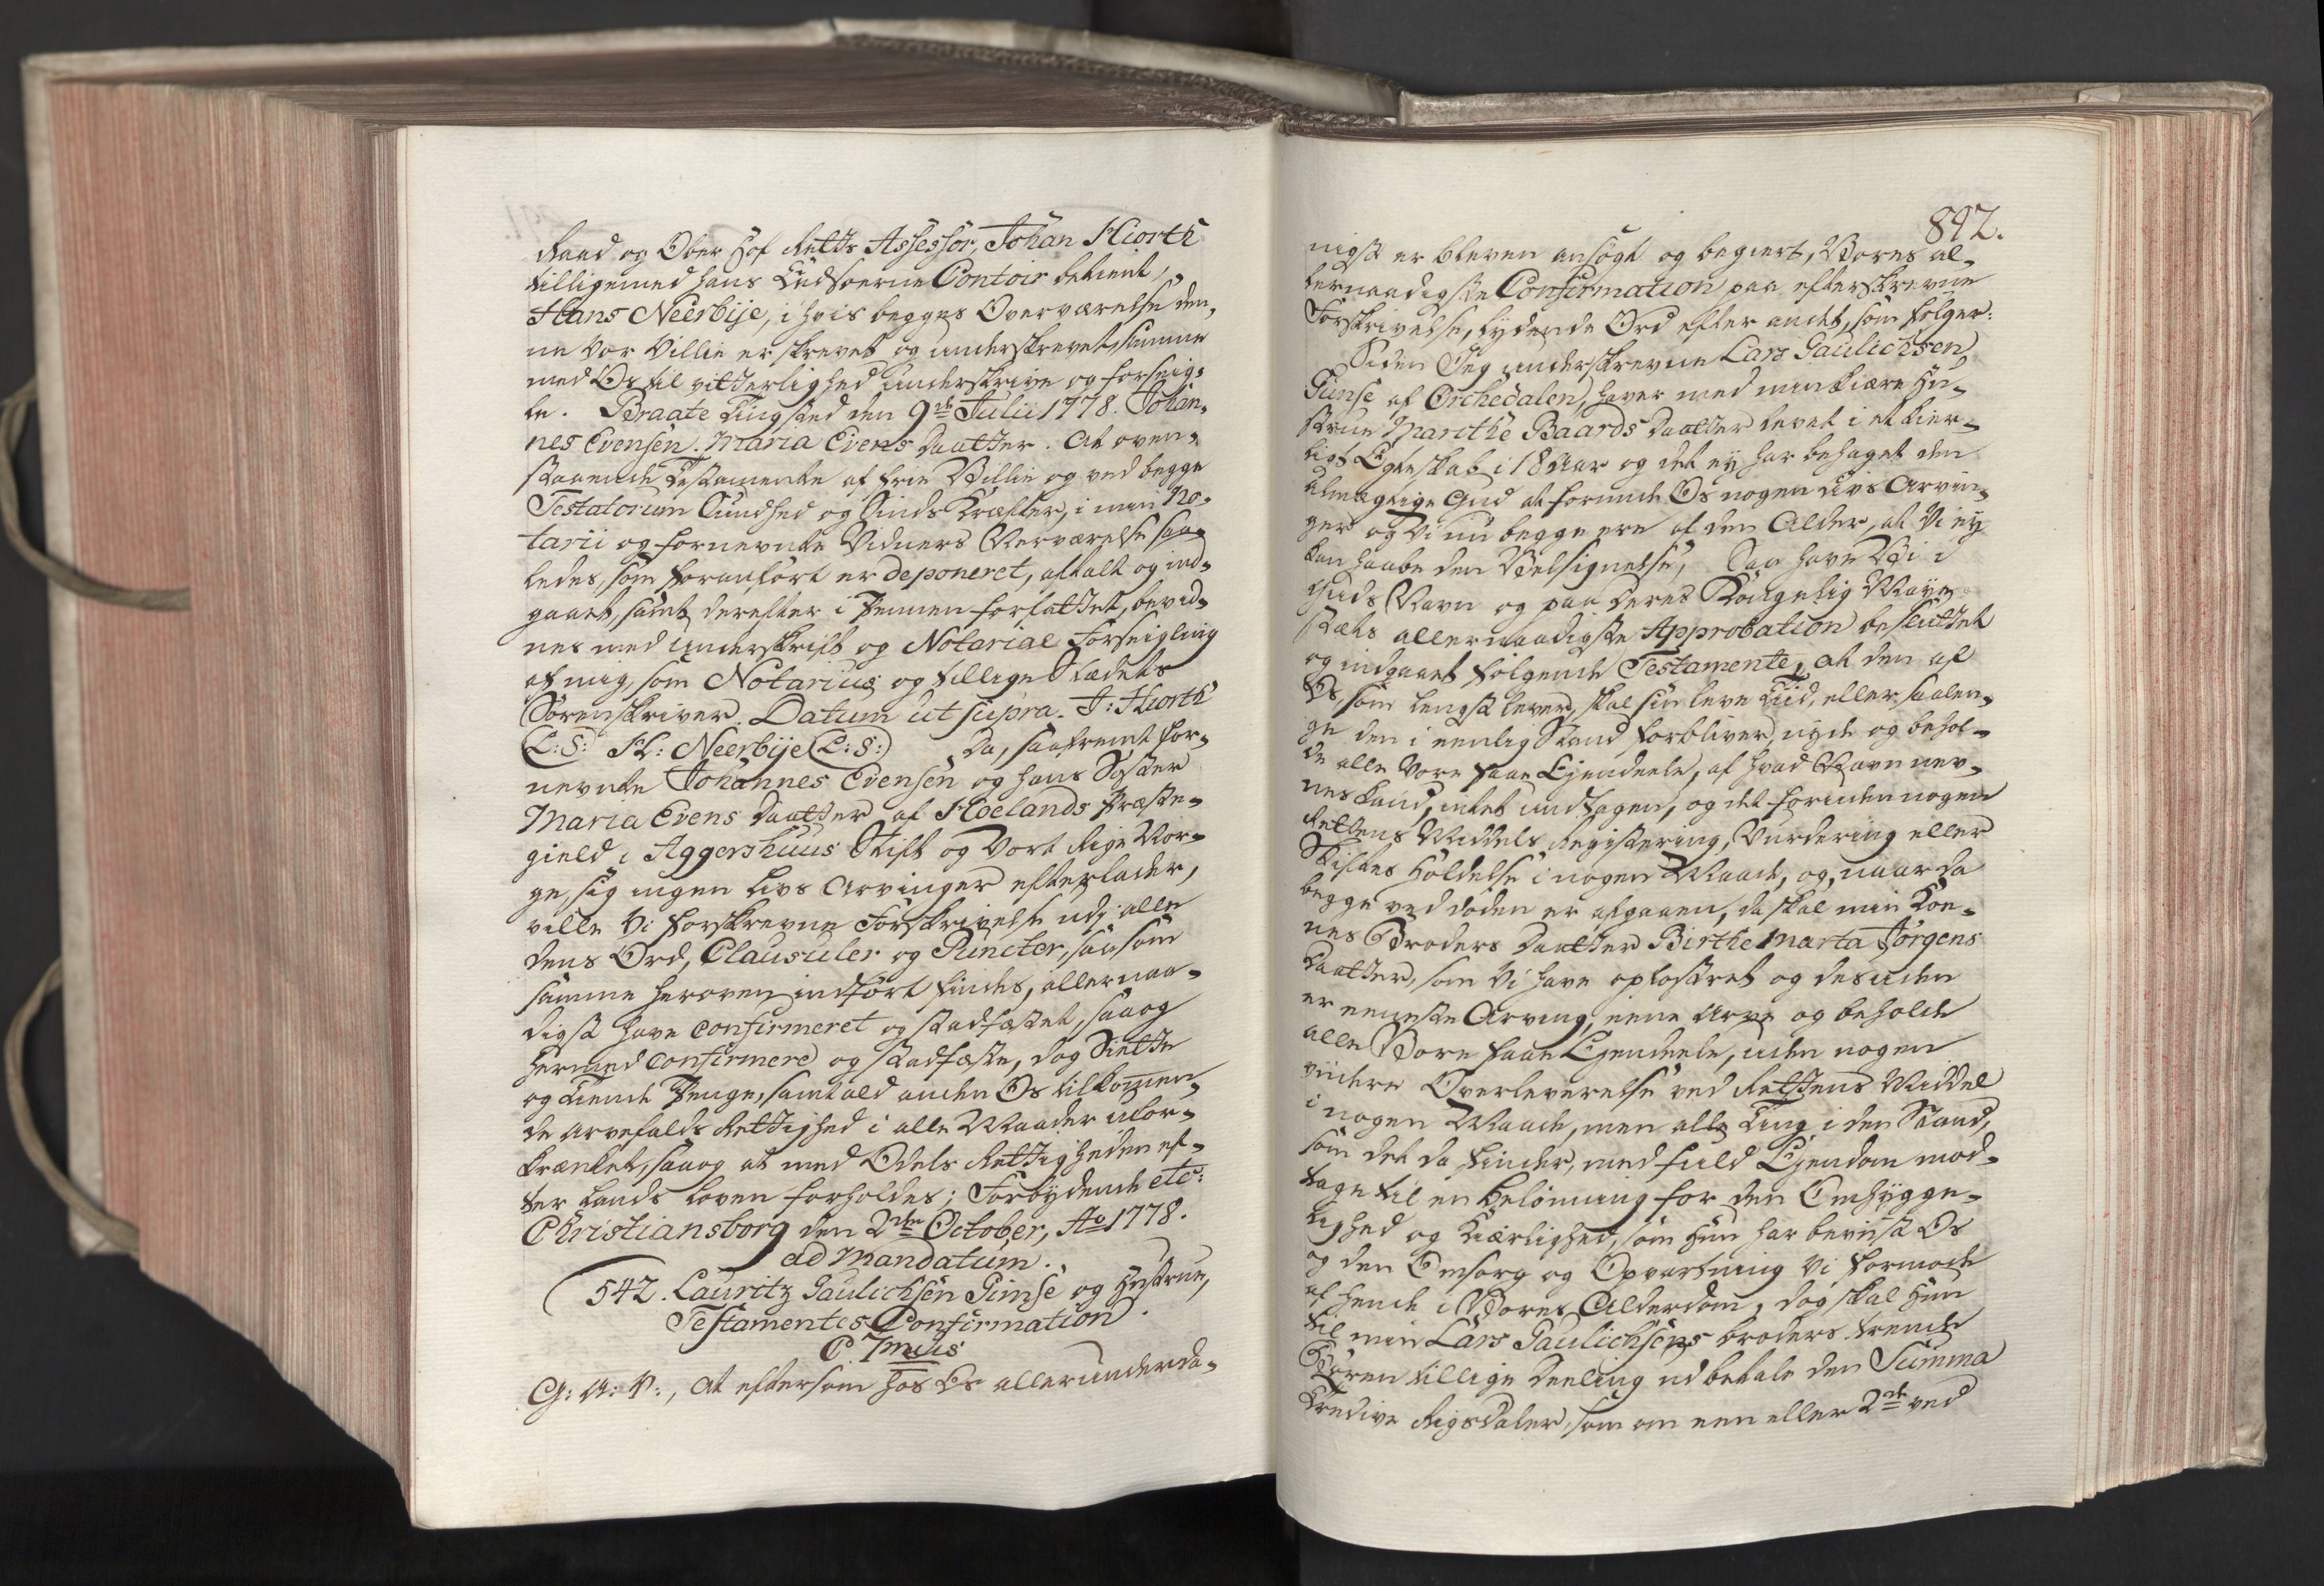 Raad og Ober Hof Retts Assessor, Johan Hiorth
tilligemed hans tiedtroerne Contoir betient,
Hans Neerbije, i hvis begges Overværelse den¬
ne Vor Villie er skrevet og underskrevet, samme
med Os til vitterlighed underskrive og forseig¬
le. Braate Tingsted den 9de Julii 1778. Johan¬
nes Evensen. Maria Evens Daatter. At oven¬
staaende Testamente af frie Villie og ved begge
Testatorum Sundhed og Sinds Kræfter, i min No¬
tarii og fornevnte Vidners Nerværelse saa¬
ledes, som foranført er deponeret, aftalt og ind¬
gaaet, samt derefter i Pennen forfattet, bevid¬
nes med Underskrift og Notarial Forseigling
af mig, som Notarius og tillige Stædets
Sorenskriver. Datum ut supra. J: Hiorth
(L:S:) H: Neerbije (L:S:) Da, saafremt for¬
nevnte Johannes Evensen og hans Søster
Maria Evens Daatter af Hoelands Præste¬
gield i Aggershuus Stift og Vort Rige Nor¬
ge, sig ingen Livs Arvinger efterlader,
ville Vi forskrevne Forskrivelse udi alle
dens Ord, Clausuler og Puncter, saasom
samme heroven indført findes, allernaa¬
digst have confirmeret og stadfæstet, saa og
hermed confirmere og stadfæste, dog Siette
og Tiende Penge, samt ald anden Os tilkommen¬
de Arvefalds Rettighed i alle Maader ufor¬
krænket, saa og at med Odels Rettigheden ef¬
ter Lands Loven forholdes; Forbydende etc:
Christiansborg den 2den October, Ao 1778.
ad Mandatum.
542. Lauritz Gaulichsen Gimse og Hustrue,
Testamentes Confirmation.
C 7mus
G: A: V:, At eftersom hos Os allerunderda¬
842.
nigst er bleven ansøgt og begiert, Vores al¬
lernaadigste Confirmation paa efterskrevne
Forskrivelse, lydende Ord efter andet, som følger:
Siden Jeg underskrevne Lars Gaulichsen
Gimse af Orchedalen, haver med min kiære Hu¬
strue Marithe Baards Daatter levet i et kier¬
ligt Egteskab i 18 Aar og det ey har behaget den
Almægtige Gud at forunde Os nogen Livs Arvin¬
ger og Vi nu begge ere af den Alder, at Vi ey
kan haabe den Velsignelse, Saa have Vi i
Guds Navn og paa Deres Kongelig Mayes¬
stæts allernaadigste Approbation besluttet
og indgaaet følgende Testamente, at den af
Os, som lengst lever, skal sin leve Tiid, eller saalen¬
ge den i eenlig Stand forbliver, nyde og behol¬
de alle Vore faae Ejendeele, af hvad Navn nev¬
nes kand, intet undtagen, og det foruden nogen
Rettens Middels Registering, Vurdering eller
Skiftes Holdelse i nogen Maade, og, naar da
begge ved døden er afgaaen, da skal min Ko¬
nes Broders Daatter Birthe Marta Jørgens
Daatter, som Vi have opfostret og desuden
er eeneste Arving, eene Arve og beholde
alle Vore faae Ejendeele, uden nogen
viidere Overleverelse ved Rettens Middel
i nogen Maade, men alle Ting i den Stand,
som det da finder, med fuld Ejendom mod¬
tage til en belønning for den Omhygge¬
lighed og Kiærlighed, som Hun har beviist Os
og den Omsorg og Opvartning Vi formode
af hende i Vores Alderdom, dog skal Hun
til min Lars Gaulichsens broders trende
Børn tillige Deeling udbetale den Summa
Tredive Rigsdaler, som om een eller 2de ved